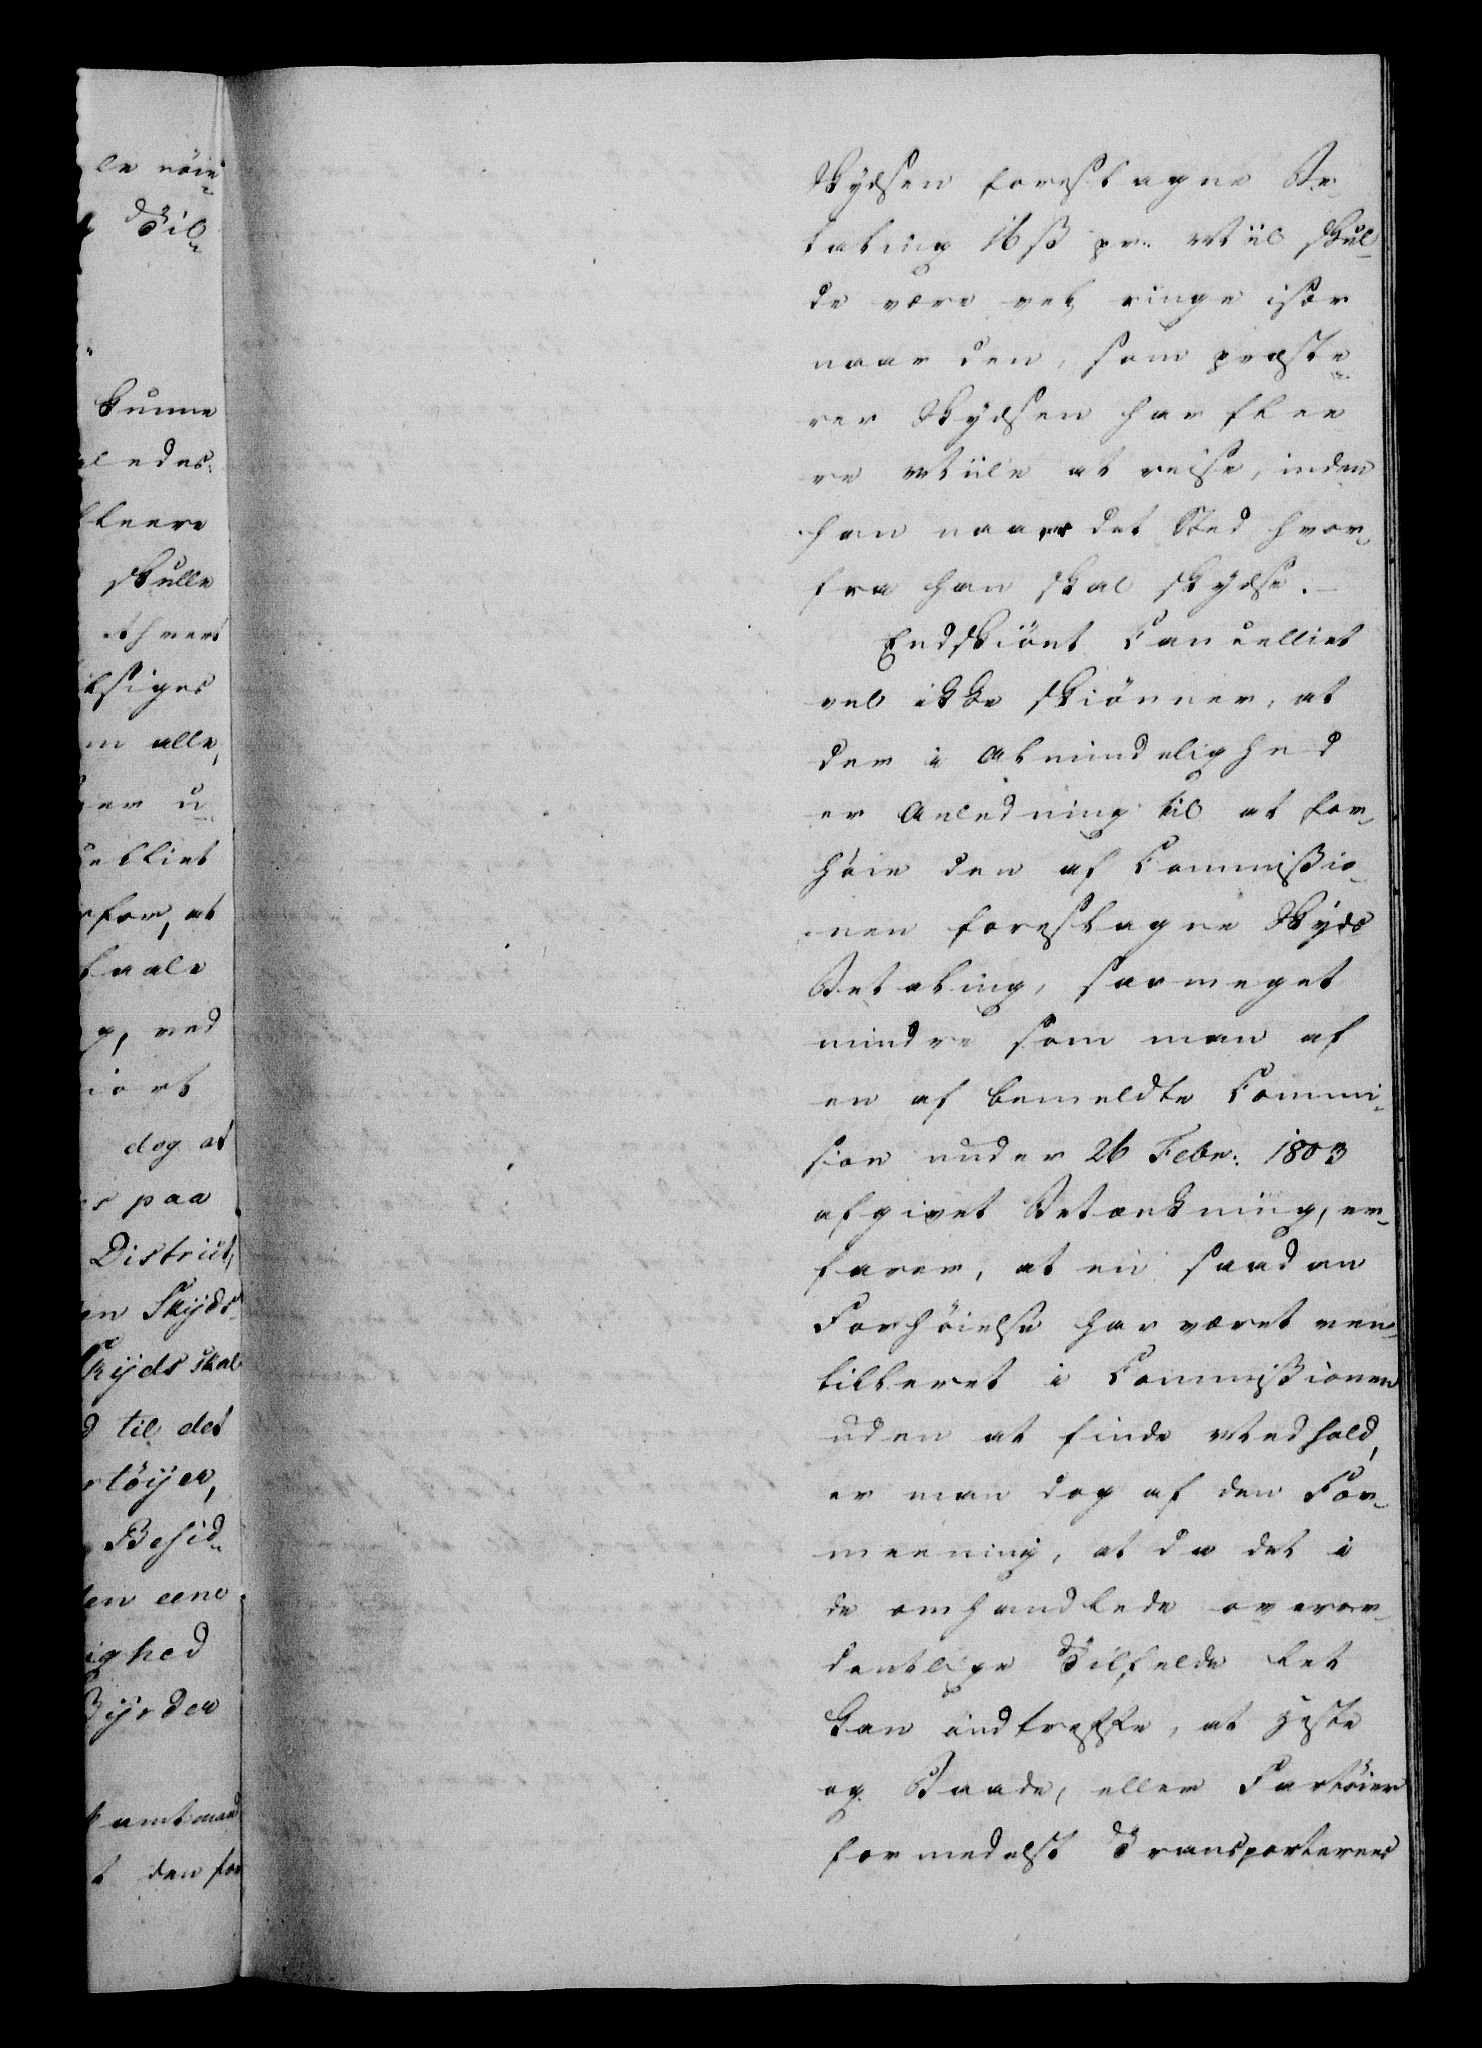 le nöie
Til
kunne
ledes
fleere
skulle
ethvert
tilsiges
m alle,
er u
celliet
rfor, at
taale
g, ved
iort
dog at
s paa
District,
en Skÿds
Skÿds skal
d til det
rtöÿer,
Besid
den eene
ighed
Bÿrder
t amtmand
t den for
Skydsen foreslagne Be
taling 16 ß pr. Miil skul
de være vel ringe især
naar den, som præste
rer Skydsen har flee
re Miile at reise, inden
han naaer det Sted hvor
fra han skal skydse. –
Endskiönt Cancelliet
vel ikke skiönner, at
der i Almindelighed
er Anledning til at for
höie den af Commißio
nen foreslagne Skyds
Betaling, saameget
mindre som man af
en af bemeldte Commi
sion under 26 Febr: 1803
afgivet Betænkning, er
farer, at en saadan
Forhöielse har været ven
tilleret i Commißionen
uden at finde Medhold,
er man dog af den For
meening, at da det i
de omhandlede overor
dentlige Tilfælde let
kan indtreffe, at Heste
og Baade, eller Fartöier
formedelst Transporternes